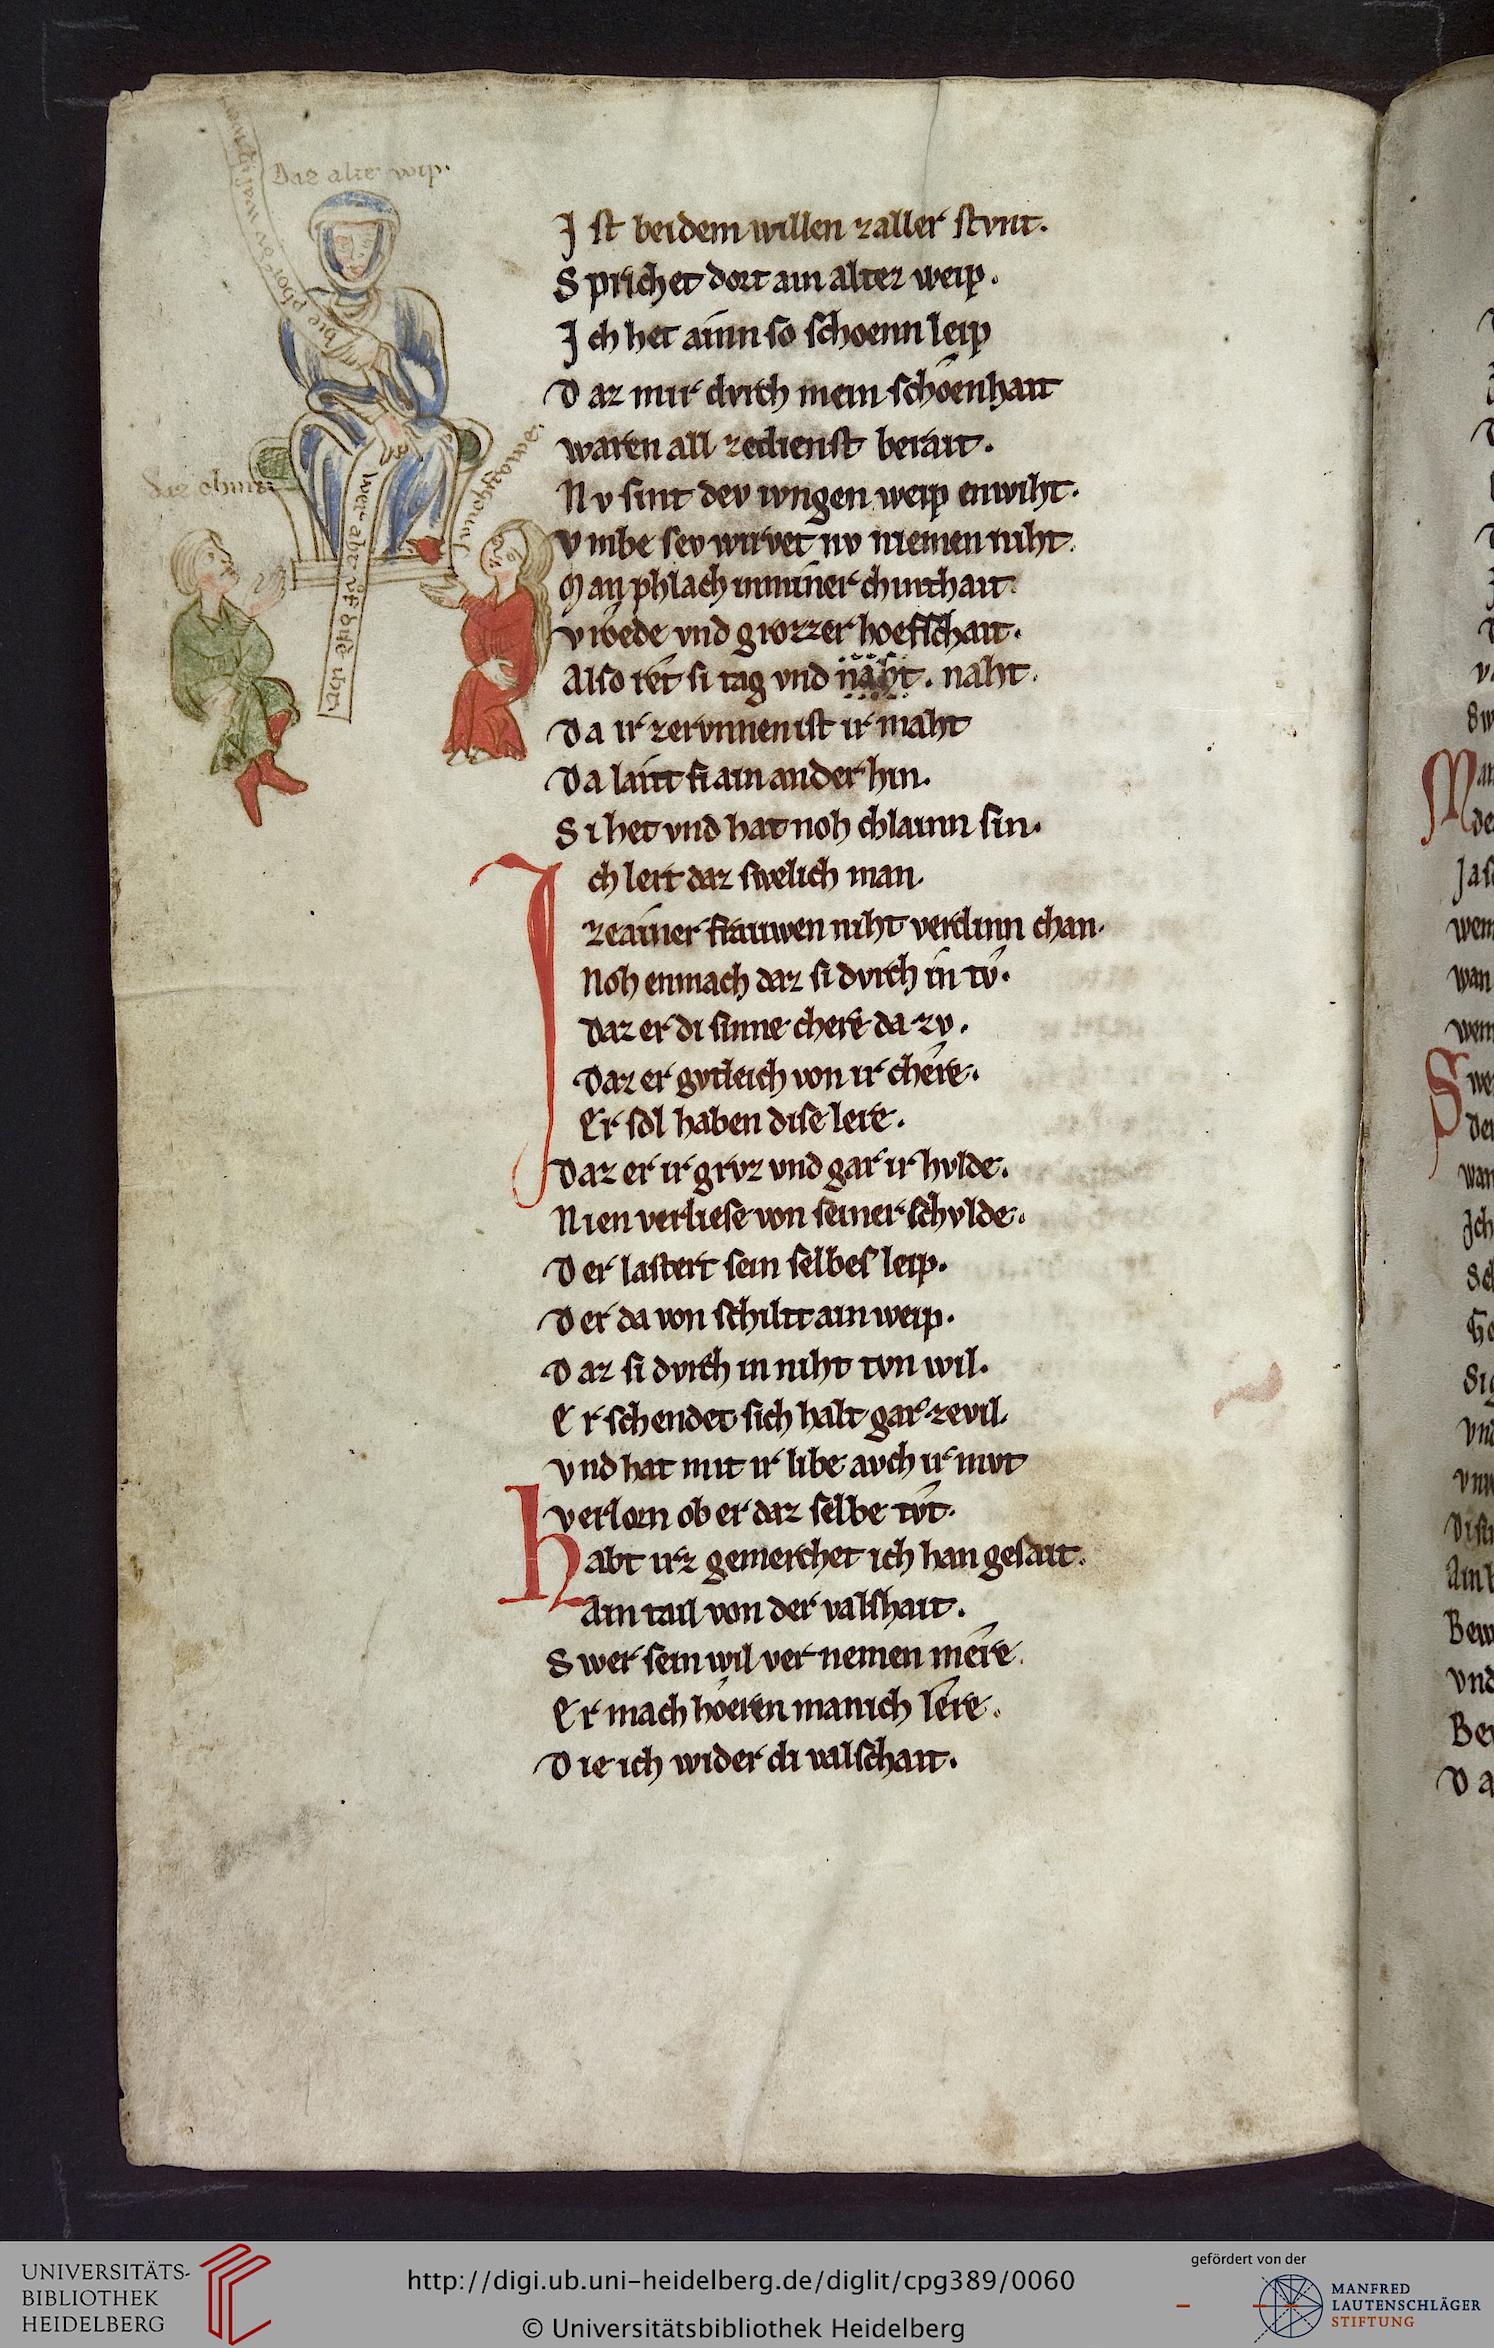 Daz alte wip.
Daz chint
Junchfrowe.
wer abt vf dise
I st bei dem willen zaller stvnt.
S prichet dort ain altez weip.
J ch het ainn so schoenn leip
D az mir dvrch mein schoenhait
waren all zedienst berait.
N v sint dev ivngen weip enwiht.
V mbe sev wirvet nv niemen niht.
M an phlach in miner chinthait
vrǒede vnd grozzer hoefschait.
Also ret si tag vnd naht. naht.
D a ir zerunnen ist ir maht
D a laitt si ain ander hin.
S i het vnd hat noh chlainn sin.
J ch lert daz swelich man.
zeainer frauwen niht verdinn chan.
Noh enmach daz si dvrch in tv.
Daz er di sinne chere da zv.
Daz er gvtleich von ir chere.
Er sol haben dise lere.
D az er ir grvz vnd gar ir hvlde.
N ien verliese von seiner schvlde.
D er lastert sein selbes leip.
D er da von schiltt ain weip.
D az si dvrch in niht tvn wil.
E r schendet sich halt gar zevil.
v nd hat mit ir libe avch ir mvt
verlorn ob er daz selbe tvt.
H abt irz gemerchet ich han gesait.
Ain tail von der valshait.
S wer sein wil vernemen mere.
E r mach hoeren manich lere.
D ie ich wider di valschait.
UNIVERSITÄTS-
BIBLIOTHEK
HEIDELBERG
http://digi.ub.uni-heidelberg.de/diglit/cpg389/0060
© Universitätsbibliothek Heidelberg
gefördert von der
MANFRED
LAUTENSCHLÄGER
STIFTUNG